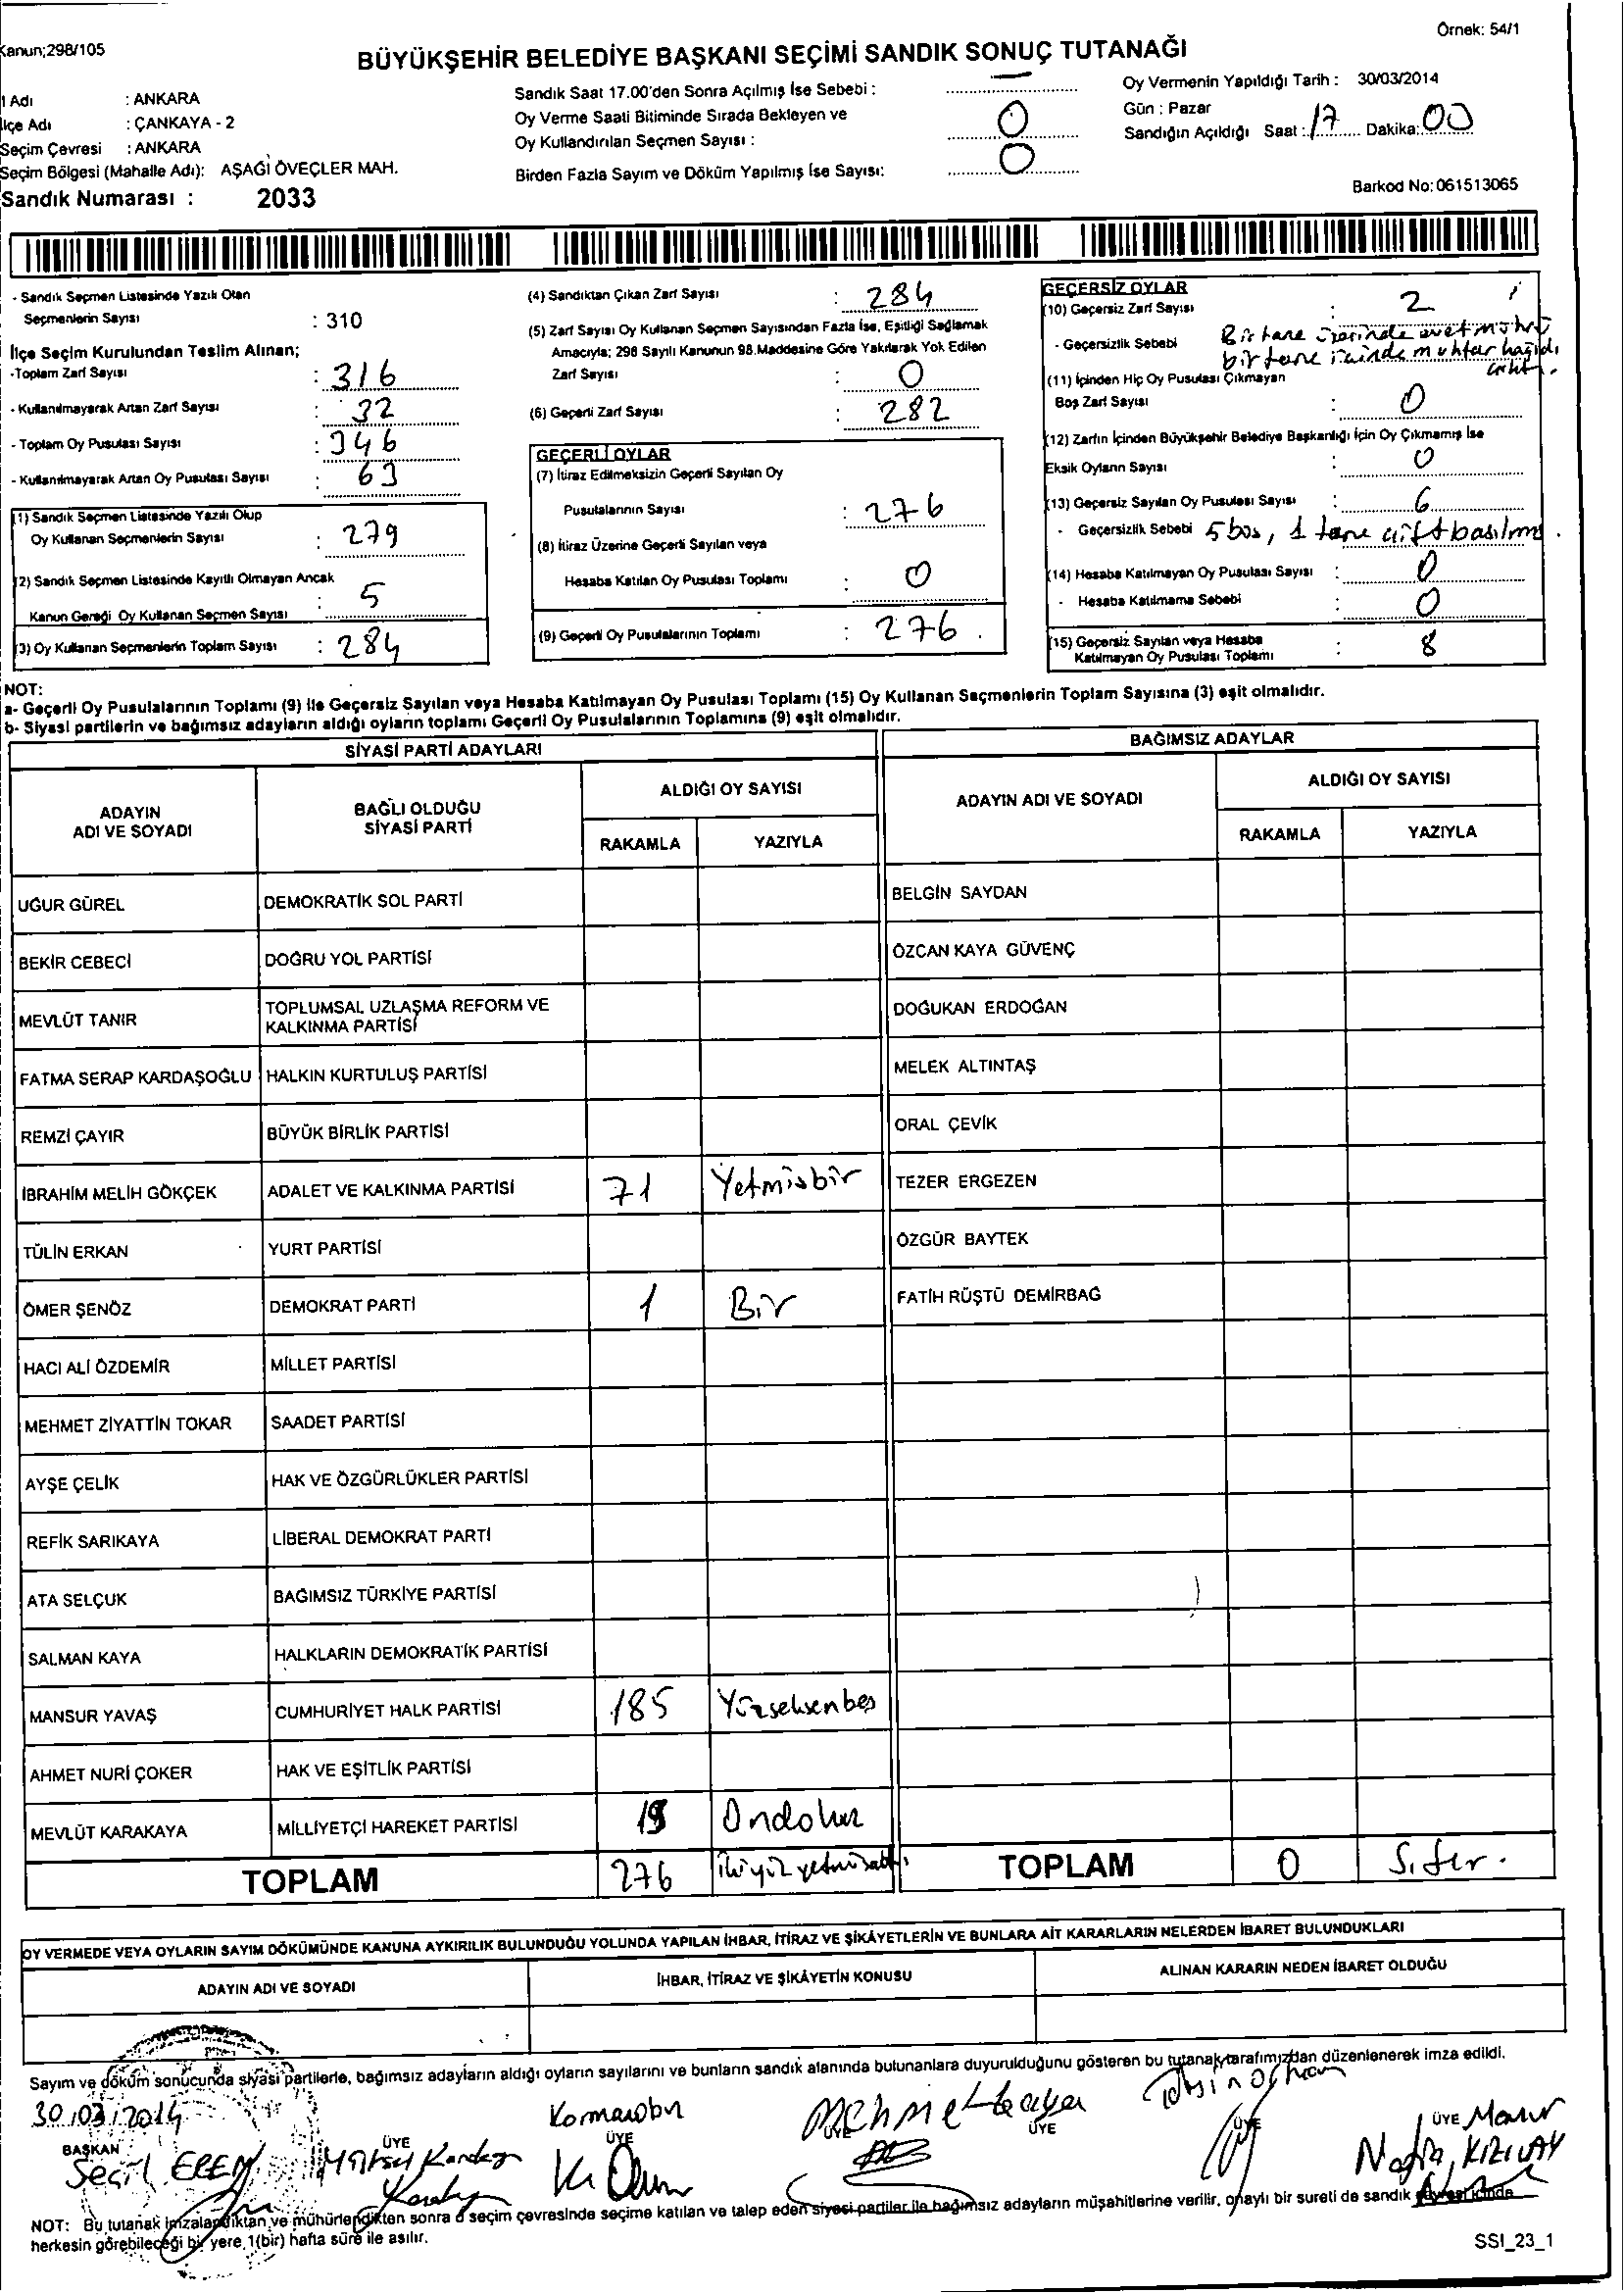 Kanun;298/105
Örnek: 54/1
BÜYÜKŞEHİR BELEDİYE BAŞKANI SEÇİMİ SANDIK SONUÇ TUTANAĞI
İl Adı : ANKARA
İlçe Adı : ÇANKAYA - 2
Seçim Çevresi : ANKARA
Seçim Bölgesi (Mahalle Adı): AŞAĞI ÖVEÇLER MAH.
Sandık Numarası : 2033
Sandık Saat 17.00'den Sonra Açılmış İse Sebebi : —
Oy Verme Saati Bitiminde Sırada Bekleyen ve
Oy Kullandırılan Seçmen Sayısı : 0
Birden Fazla Sayım ve Döküm Yapılmış İse Sayısı: 0
Oy Vermenin Yapıldığı Tarih : 30/03/2014
Gün : Pazar
Sandığın Açıldığı Saat : 17 Dakika: 00
Barkod No: 061513065
- Sandık Seçmen Listesinde Yazılı Olan
Seçmenlerin Sayısı : 310
İlçe Seçim Kurulundan Teslim Alınan;
-Toplam Zarf Sayısı : 316
- Kullanılmayarak Artan Zarf Sayısı : 32
- Toplam Oy Pusulası Sayısı : 346
- Kullanılmayarak Artan Oy Pusulası Sayısı : 63
(1) Sandık Seçmen Listesinde Yazılı Olup
Oy Kullanan Seçmenlerin Sayısı : 279
(2) Sandık Seçmen Listesinde Kayıtlı Olmayan Ancak
Kanun Gereği Oy Kullanan Seçmen Sayısı : 5
(3) Oy Kullanan Seçmenlerin Toplam Sayısı : 284
(4) Sandıktan Çıkan Zarf Sayısı : 284
(5) Zarf Sayısı Oy Kullanan Seçmen Sayısından Fazla İse, Eşitliği Sağlamak
Amacıyla; 298 Sayılı Kanunun 98.Maddesine Göre Yakılarak Yok Edilen
Zarf Sayısı : 0
(6) Geçerli Zarf Sayısı : 282
GEÇERLİ OYLAR
(7) İtiraz Edilmeksizin Geçerli Sayılan Oy
Pusulalarının Sayısı : 276
(8) İtiraz Üzerine Geçerli Sayılan veya
Hesaba Katılan Oy Pusulası Toplamı : 0
(9) Geçerli Oy Pusulalarının Toplamı : 276
GEÇERSİZ OYLAR
(10) Geçersiz Zarf Sayısı : 2
- Geçersizlik Sebebi Bir tane üzerinde evet mührü
bir tane içinde muhtar kağıdı
çıktı.
(11) İçinden Hiç Oy Pusulası Çıkmayan
Boş Zarf Sayısı : 0
(12) Zarfın İçinden Büyükşehir Belediye Başkanlığı İçin Oy Çıkmamış İse
Eksik Oyların Sayısı : 0
(13) Geçersiz Sayılan Oy Pusulası Sayısı : 6
- Geçersizlik Sebebi 5 boş, 1 tane çift basılmış.
(14) Hesaba Katılmayan Oy Pusulası Sayısı : 0
- Hesaba Katılmama Sebebi : 0
(15) Geçersiz Sayılan veya Hesaba
Katılmayan Oy Pusulası Toplamı : 8
NOT:
a- Geçerli Oy Pusulalarının Toplamı (9) ile Geçersiz Sayılan veya Hesaba Katılmayan Oy Pusulası Toplamı (15) Oy Kullanan Seçmenlerin Toplam Sayısına (3) eşit olmalıdır.
b- Siyasi partilerin ve bağımsız adayların aldığı oyların toplamı Geçerli Oy Pusulalarının Toplamına (9) eşit olmalıdır.
SİYASİ PARTİ ADAYLARI
ADAYIN ADI VE SOYADI
BAĞLI OLDUĞU SİYASİ PARTİ
ALDIĞI OY SAYISI
RAKAMLA YAZIYLA
UĞUR GÜREL DEMOKRATİK SOL PARTİ
BEKİR CEBECİ DOĞRU YOL PARTİSİ
MEVLÜT TANIR TOPLUMSAL UZLAŞMA REFORM VE
KALKINMA PARTİSİ
FATMA SERAP KARDAŞOĞLU HALKIN KURTULUŞ PARTİSİ
REMZİ ÇAYIR BÜYÜK BİRLİK PARTİSİ
İBRAHİM MELİH GÖKÇEK ADALET VE KALKINMA PARTİSİ 71 Yetmişbir
TÜLİN ERKAN YURT PARTİSİ
ÖMER ŞENÖZ DEMOKRAT PARTİ 1 Bir
HACI ALİ ÖZDEMİR MİLLET PARTİSİ
MEHMET ZİYATTİN TOKAR SAADET PARTİSİ
AYŞE ÇELİK HAK VE ÖZGÜRLÜKLER PARTİSİ
REFİK SARIKAYA LİBERAL DEMOKRAT PARTİ
ATA SELÇUK BAĞIMSIZ TÜRKİYE PARTİSİ
SALMAN KAYA HALKLARIN DEMOKRATİK PARTİSİ
MANSUR YAVAŞ CUMHURİYET HALK PARTİSİ 185 Yüzseksenbeş
AHMET NURİ ÇOKER HAK VE EŞİTLİK PARTİSİ
MEVLÜT KARAKAYA MİLLİYETÇİ HAREKET PARTİSİ 19 Ondokuz
TOPLAM 276 ikiyüzyetmişaltı
BAĞIMSIZ ADAYLAR
ADAYIN ADI VE SOYADI
ALDIĞI OY SAYISI
RAKAMLA YAZIYLA
BELGİN SAYDAN
ÖZCAN KAYA GÜVENÇ
DOĞUKAN ERDOĞAN
MELEK ALTINTAŞ
ORAL ÇEVİK
TEZER ERGEZEN
ÖZGÜR BAYTEK
FATİH RÜŞTÜ DEMİRBAĞ
TOPLAM 0 Sıfır.
OY VERMEDE VEYA OYLARIN SAYIM DÖKÜMÜNDE KANUNA AYKIRILIK BULUNDUĞU YOLUNDA YAPILAN İHBAR, İTİRAZ VE ŞİKÂYETLERİN VE BUNLARA AİT KARARLARIN NELERDEN İBARET BULUNDUKLARI
ADAYIN ADI VE SOYADI
İHBAR, İTİRAZ VE ŞİKÂYETİN KONUSU
ALINAN KARARIN NEDEN İBARET OLDUĞU
Sayım ve döküm sonucunda siyasi partilerle, bağımsız adayların aldığı oyların sayılarını ve bunların sandık alanında bulunanlara duyurulduğunu gösteren bu tutanak tarafımızdan düzenlenerek imza edildi.
30/03/2014
BAŞKAN ÜYE ÜYE ÜYE ÜYE ÜYE ÜYE
Seçil EREN
Mehmet Kaya
KIZILAY
NOT: Bu tutanak imzalandıktan ve mühürlendikten sonra o seçim çevresinde seçime katılan ve talep eden siyasi partiler ile bağımsız adayların müşahitlerine verilir, onaylı bir sureti de sandık çevresi içinde
herkesin görebileceği bir yere 1(bir) hafta süre ile asılır.
SSI_23_1